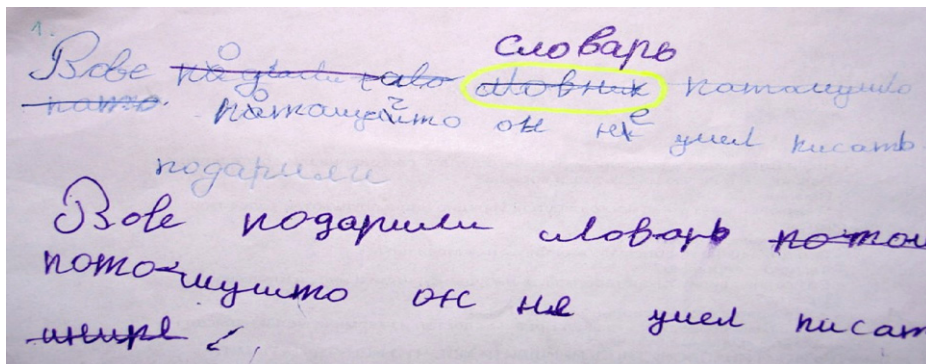 1.
словарь
Вове словник потомушто
потомушто он не умел писать
подарили
Вове подарили словарь
потомушто он не умел писат